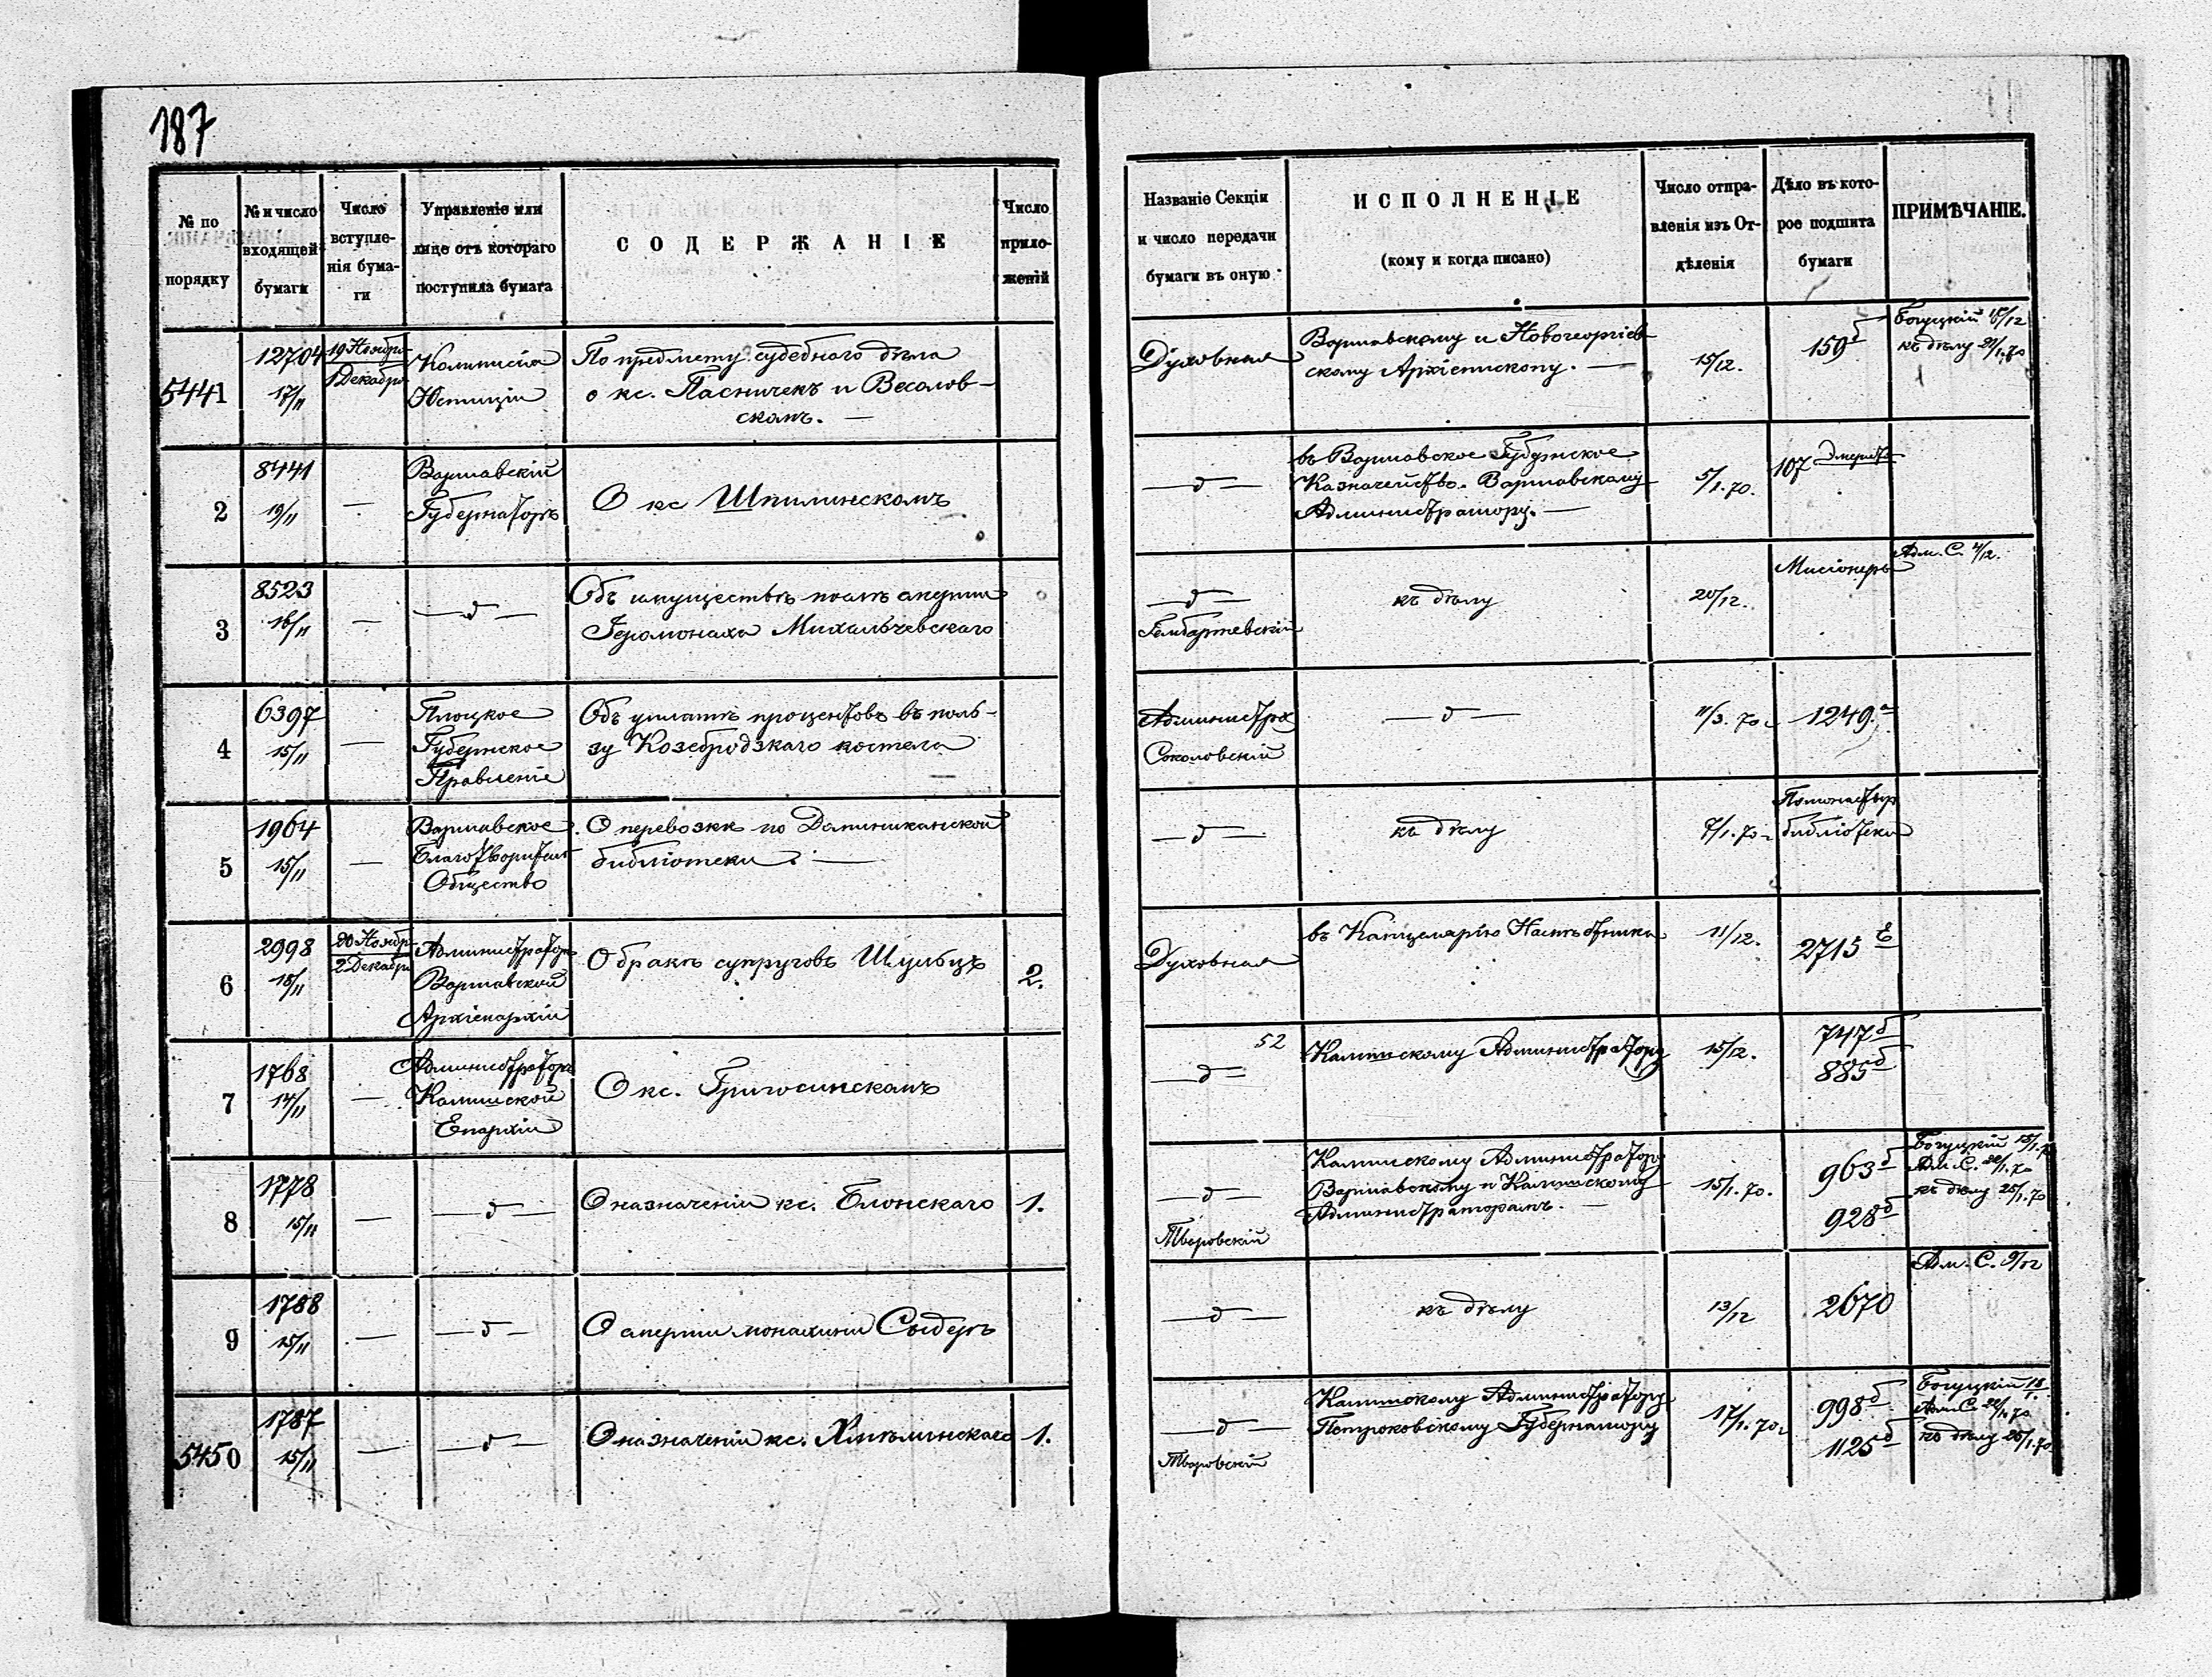 187
№ по порядку
№ и число входящей бумаги
Число вступле-нія бума-ги
Управленіе или лице отъ котораго поступила бумага
СОДЕРЖАНІЕ
Число прило-женій
Названіе Секціи и число передачи бумаги въ оную
ИСПОЛНЕНІЕ
(кому и когда писано)
Число отпра-вленія изъ От-дѣленія
Дѣло въ кото-рое подшита бумаги
ПРИМѢЧАНІЕ.
5441
12704
17/11
19 Ноября
1 Декабря
Коммисія
Юстиціи
По предмету судебнаго дѣла
о кс. Пасничекъ и Весолов-
скомъ. —
Духовная
Варшавскому и Новогеоргіев-
скому Архіепископу. —
15/12.
159 б
Богуцкій 18/12
къ дѣлу 21/1.70
2
8441
19/11
—
Варшавскій
Губернаторъ
О кс Шпилинскомъ
— д —
въ Варшавское Губернское
Казначейство. Варшавскому
Администратору. —
5/1.70.
107
3
8523
16/11
—
— д —
Объ имуществѣ послѣ смерти
Іеромонаха Михальчевскаго
— д —
Гембаржевскій
къ дѣлу
20/12.
Мисіонеръ
Адм. С. 4/12.
4
6397
15/11
—
Плоцкое
Губернское
Правленіе
Объ уплатѣ процентовъ въ поль-
зу Козебродзкаго костела
Администра
Соколовскій
— д —
11/3.70.
1249. а
5
1964
15/11
—
Варшавское
Благотворител
Общество
О перевозкѣ по Доминиканской
библіотеки. —
— д —
къ дѣлу
7/1.70.
Помонастыр
библіотека
6
2998
18/11
20 Ноябр
2 Декабря
Администраторъ
Варшавской
Архіепархіи
О бракѣ супруговъ Шульцъ
2.
Духовная
въ Канцелярію Намѣстника
11/12.
2715 Е
7
1768
14/11
—
Администраторъ
Калишской
Епархіи
О кс. Григосинскомъ
52
— д —
Калишскому Администратору
15/12.
747 б
885 б
8
1778
15/11
—
— д —
О назначеніи кс. Блонскаго
1.
— д —
Творовскій
Калишскому Администратору
Варшавскому и Калишскому
Администраторамъ. —
15/1.70.
963 б
928 б
Богуцкій 15/1.7
Адм. С. 22/1.70
къ дѣлу 25/1.70
9
1788
15/11
—
— д —
О смерти монахини Сыдеръ
— д —
къ дѣлу
13/12
2670
Адм. С. 9/12
5450
1787
15/11
—
— д —
О назначеніи кс. Хмѣлинскаго
1.
— д —
Творовскій
Калишскому Администратору
Петроковскому Губернатору
17/1.70.
998 б
1125 б
Богуцкій 18/1.
Адм С 22/1.70
къ дѣлу 25/1.70